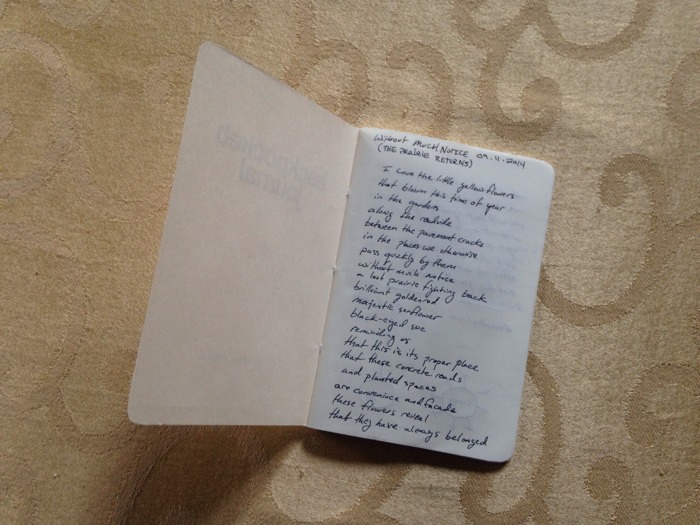 Without Much Notice 09.11.2014
(The Prairie Returns)
I love the little yellow flowers
that bloom this time of year
in the gardens
along the roadside
between the pavement cracks
in the places we otherwise
pass quickly by them
without much notice
a lost prairie fighting back
brilliant goldenrod
majestic sunflower
black-eyed sue
reminding us
that this is its proper place
that these concrete roads
and planted spaces
are convenience and facade
these flowers reveal
that they have always belonged